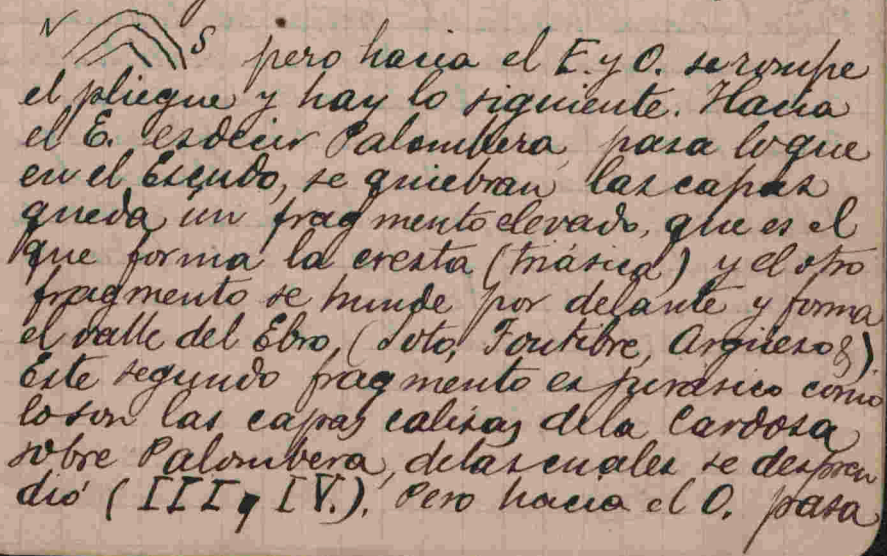 N S pero hacia el E. y O. se rompe
el pliegue y hay lo siguiente. Hacia
el E. es decir Palombera, pasa lo que
en el Escudo, se quiebran las capas
queda un fragmento elevado, que es el
que forma la cresta (triásica) y el otro
fragmento se hunde por delante y forma
el valle del Ebro, (Soto, Fontibre, Argüeso &)
Este segundo fragmento es jurásico como
lo son las capas calizas de la Cardosa
sobre Palombera, de las cuales se despren
dió (III y IV.). Pero hacia el O. pasa